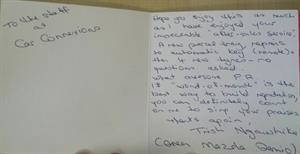 To the staff
at
Car Connexions
Hope you enjoy this as much
as I have enjoyed your
immaculate "after-sales service".
A new panel, key repairs
to automatic key (remote) &
then 4 new tyres - no
questions asked.
What awesome P.R.
If "word-of-mouth" is the
best way to build reputation,
you can definitely count
on me to sing your praises
thanks again,
Trish
(Green Mazda Demio)